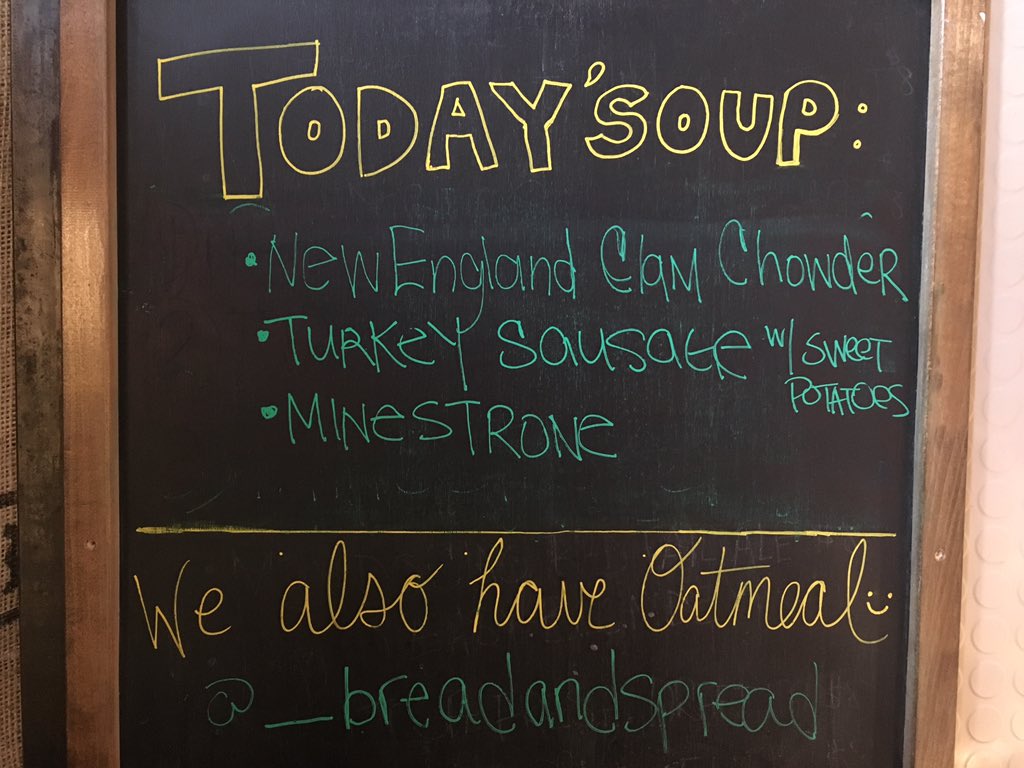 TODAY'SOUP:
• New England Clam Chowder
• TURKEY SAUSAGE w/ SWEET POTATOES
• MINESTRONE
We also have Oatmeal :)
@_breadandspread